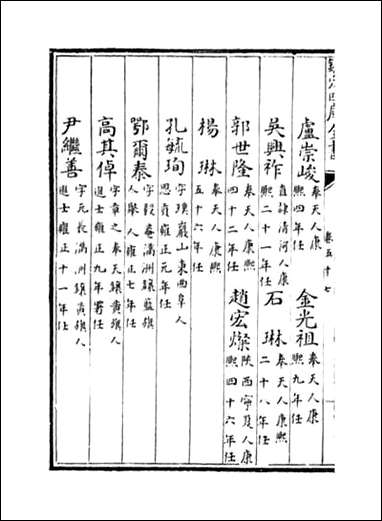 欽定四庫全書
卷五十七
盧崇峻 奉天人康熙 年任 金光祖 奉天人康熙九年任
吳興祚 直隸清河人康熙二十一年任 石琳 奉天人康熙二十八年任
郭世隆 奉天人康熙四十二年任 趙宏燦 陝西寧夏人康熙四十六年任
楊琳 奉天人康熙五十六年任
孔毓珣 字璞巖山東曲阜人恩貢雍正元年任
鄂爾泰 字毅菴滿洲鑲藍旗人舉人雍正七年任
高其倬 字章之奉天鑲黃旗人進士雍正九年署任
尹繼善 字元長滿洲鑲黃旗人進士雍正十一年任